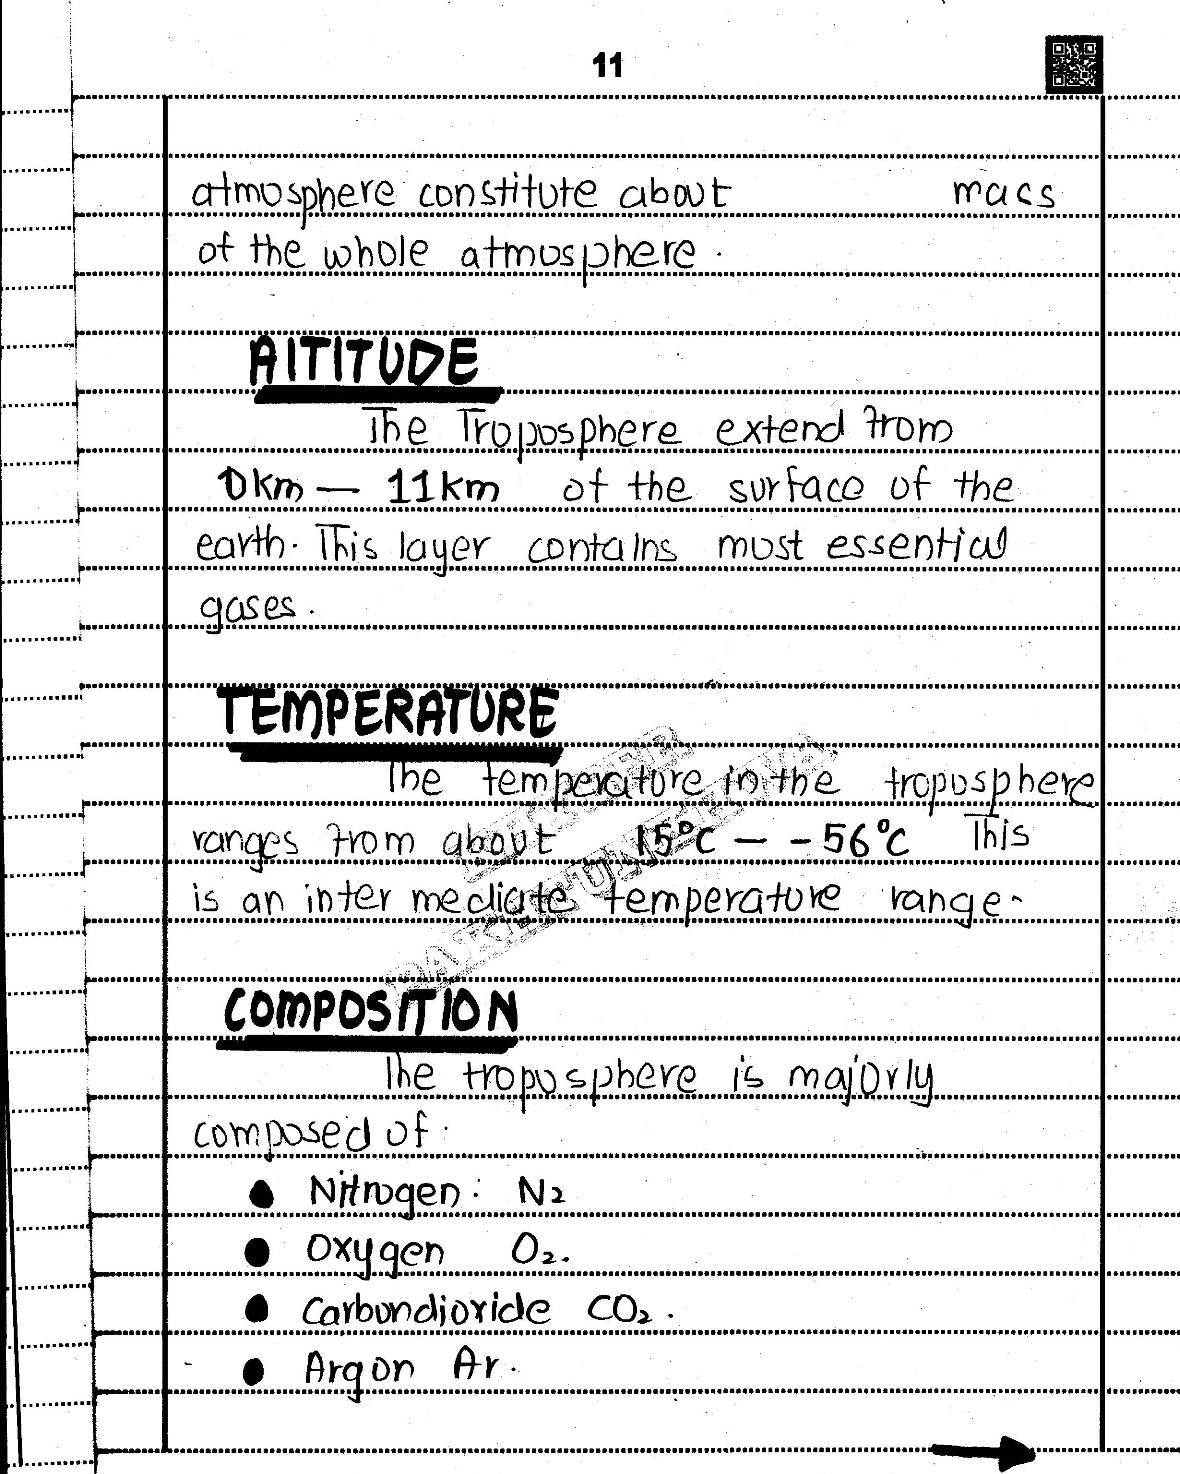 11
atmosphere constitute about mass
of the whole atmosphere.
AITITUDE
The Troposphere extend from
0km — 11km of the surface of the
earth. This layer contains most essential
gases.
TEMPERATURE
The temperature in the troposphere
ranges from about 15°C — -56°C This
is an inter mediate temperature range.
COMPOSITION
The troposphere is majorly
composed of:
● Nitrogen: N₂
● Oxygen O₂.
● Carbondioxide CO₂.
● Argon Ar.